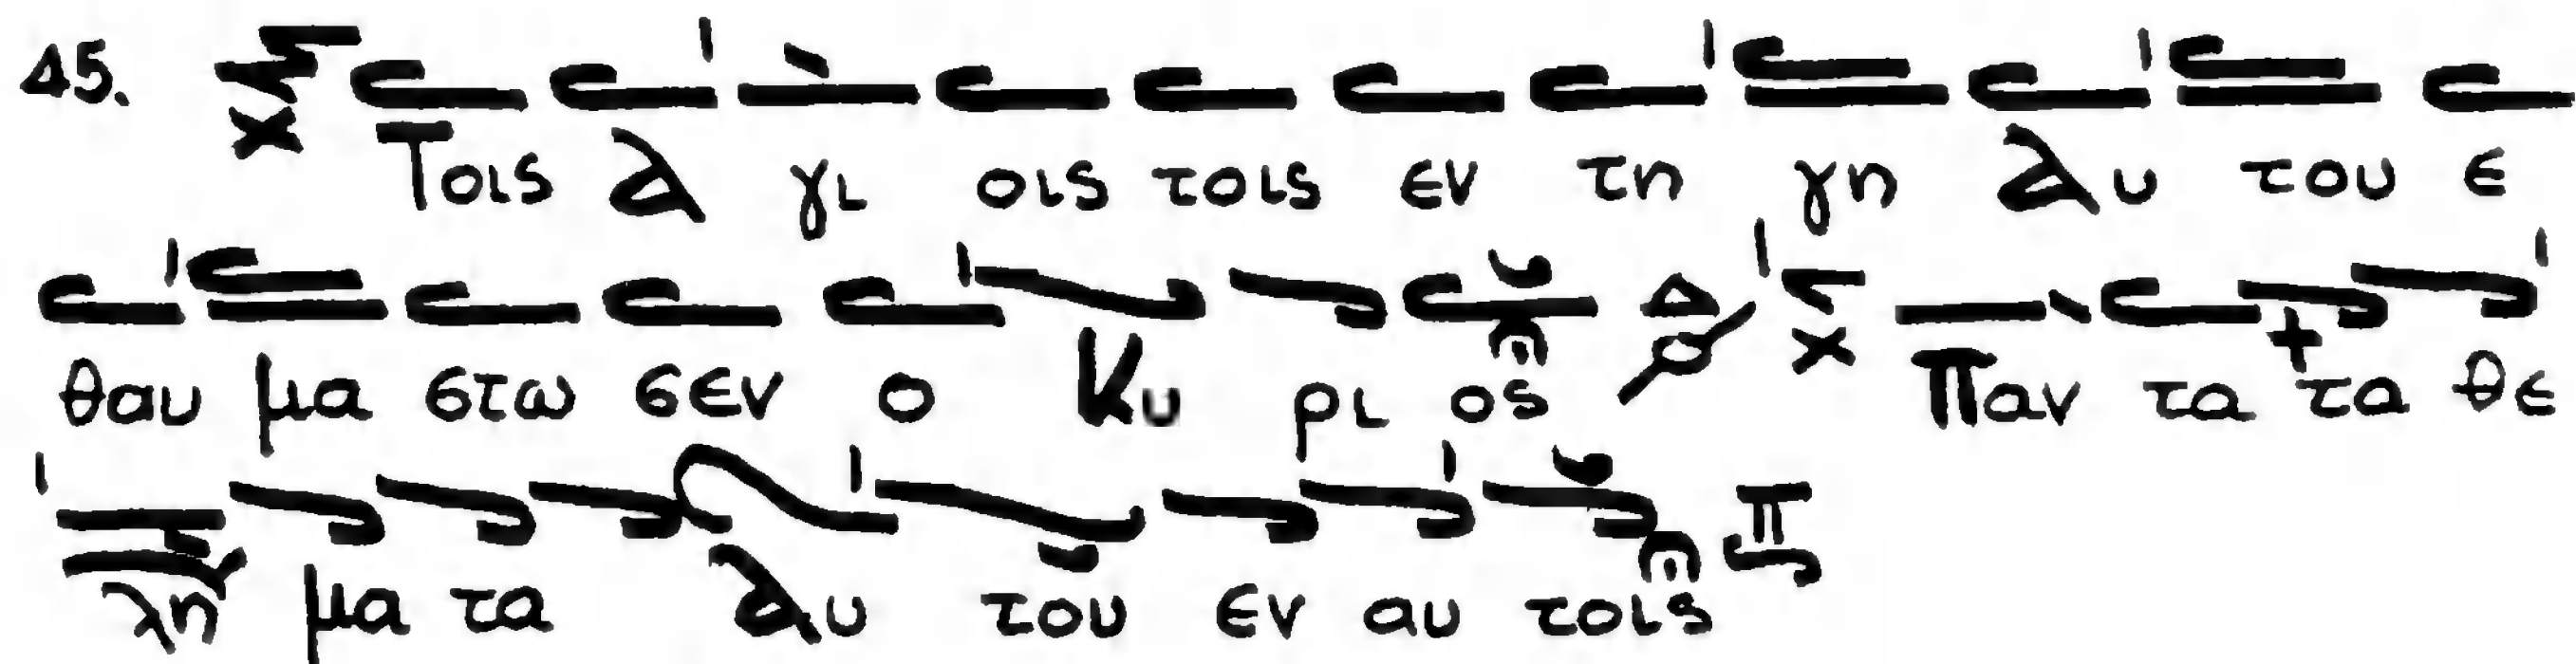 45. χ Τοις α γι οις τοις εν τη γη αυ του ε
θαυ μα στω σεν ο Κυ ρι ος Δ χ Παν τα τα θε
λη μα τα αυ του εν αυ τοις π